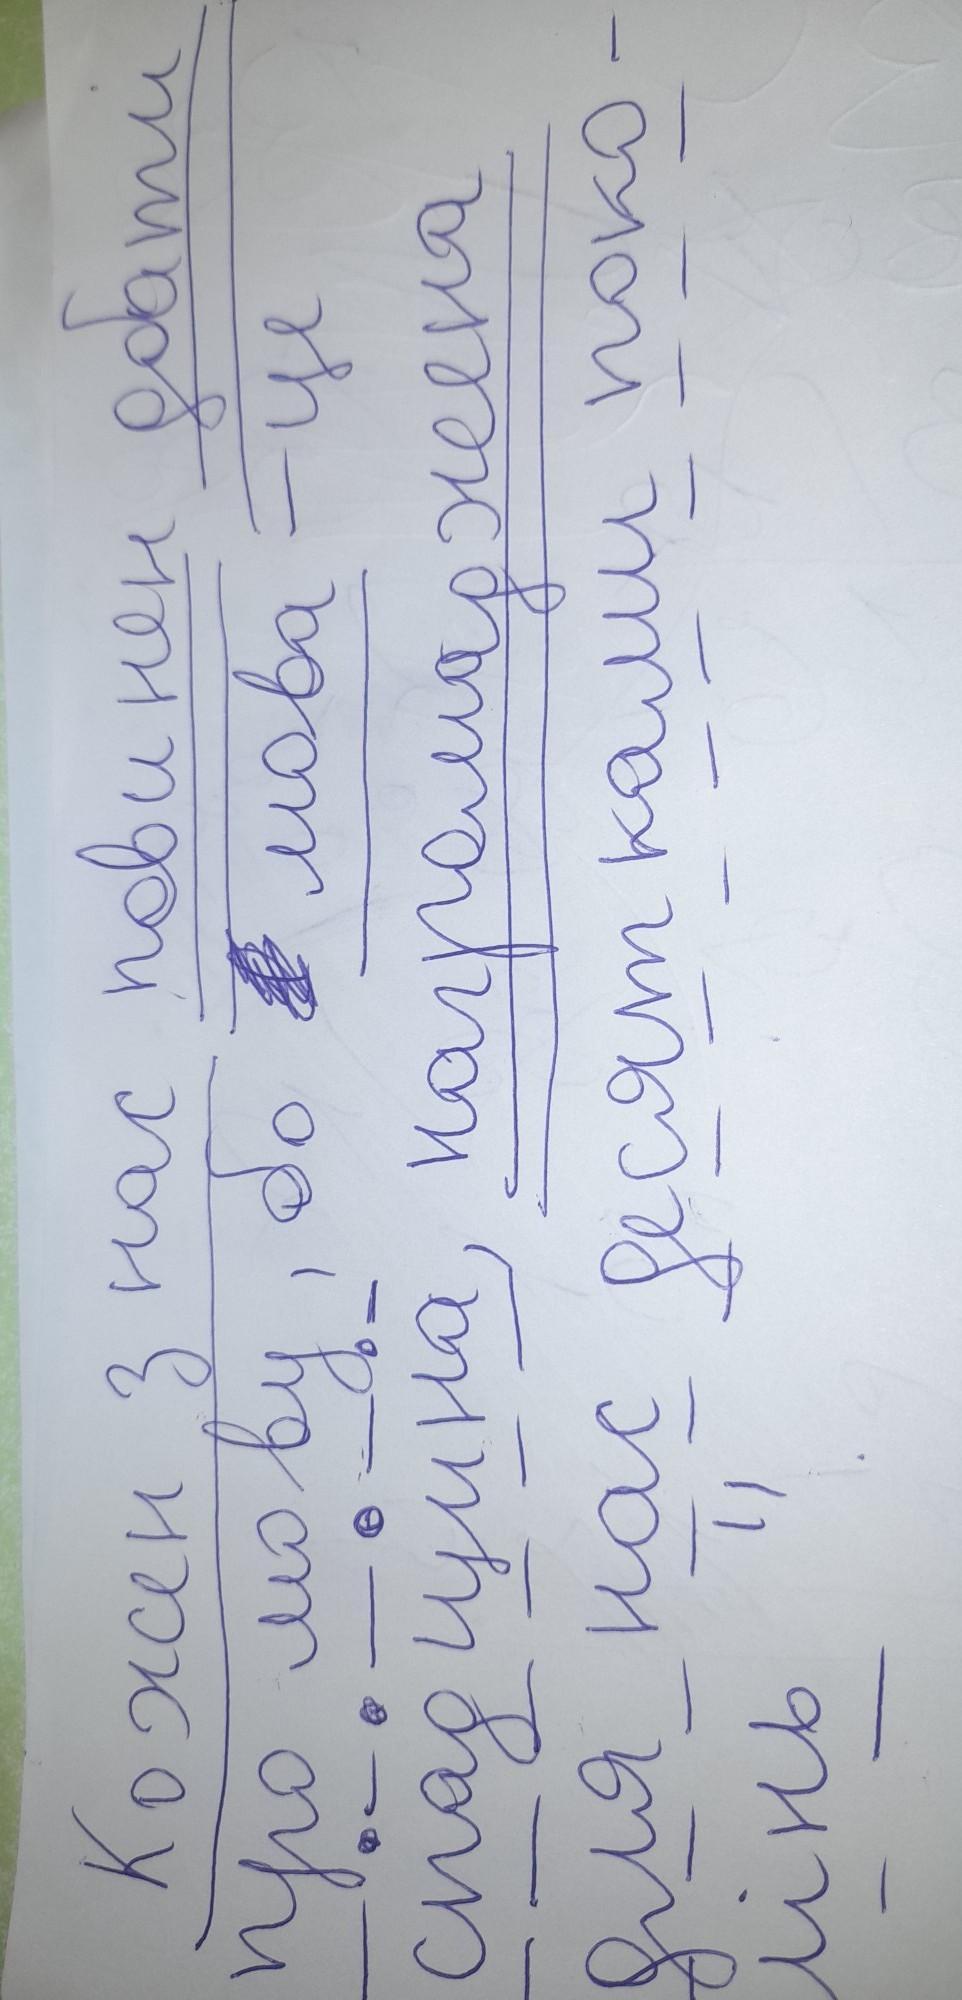 Кожен з нас повинен дбати
про мову, бо мова – це
спадщина, нагромаджена
для нас десятками поко-
лінь